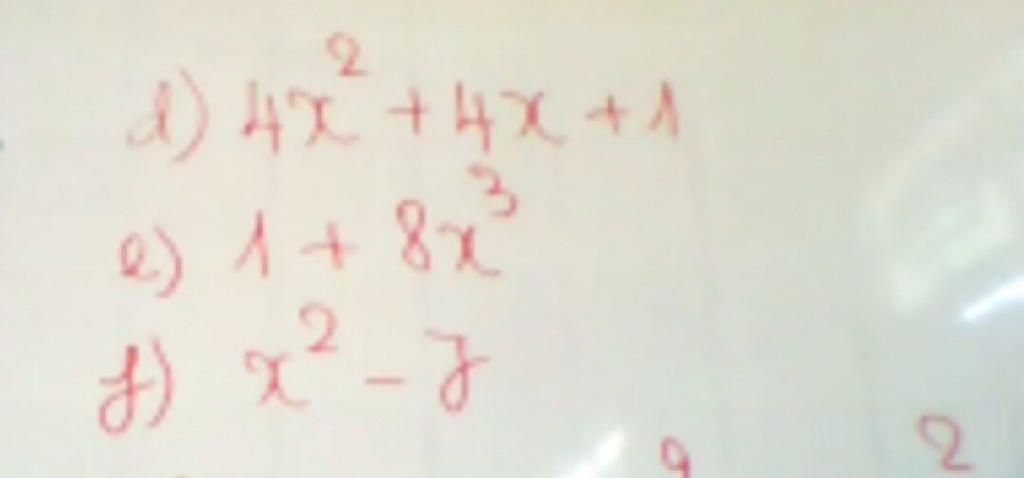 d) 4x² + 4x + 1
e) 1 + 8x³
f) x² - 7
9 2